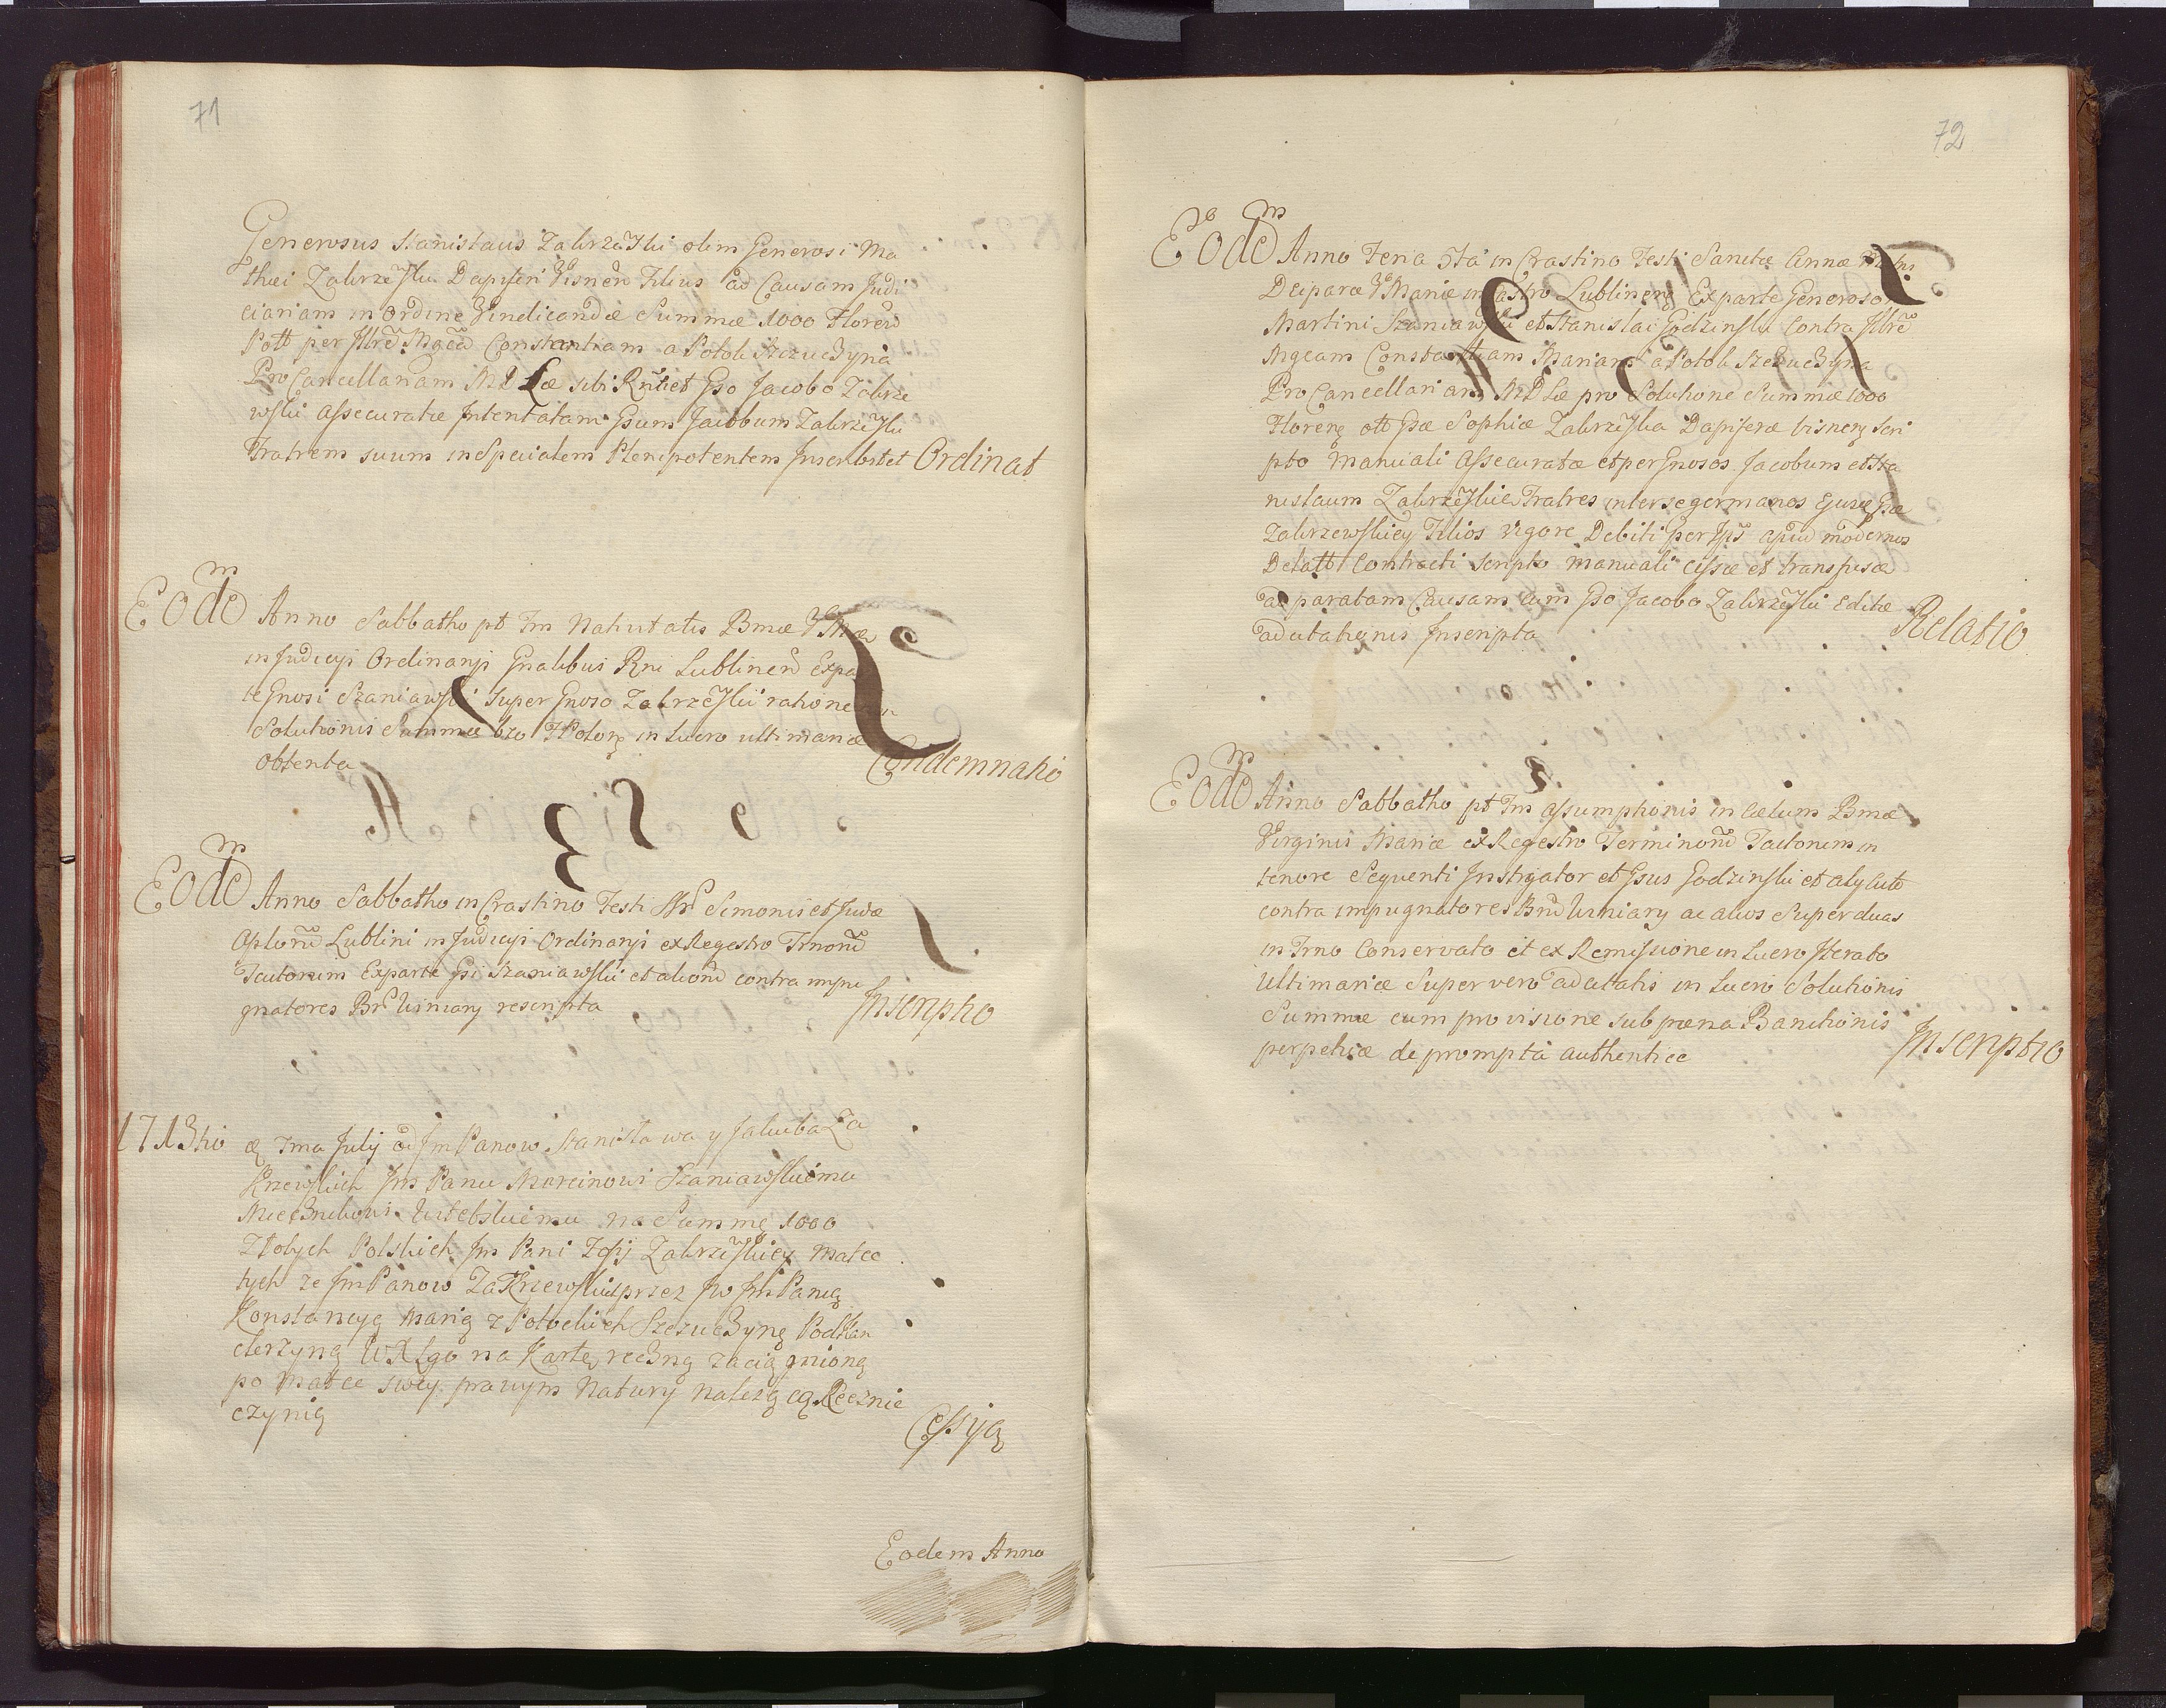 71
Generosus Stanislaus Zakrzewski olim Generosi Ma
thei Zakrzewski Dapiferi Visnen Filius ad Causam Judi
ciariam in Ordine Vindicandæ Summæ 1000 Floren
Poll per Illrem Mgcam Constantiam a Potok Szczuczyna
Pro Cancellariam M D L sibi et Gso Jacobo Zakrze
wski assecuratæ Intentatam Gsum Jacobum Zakrzewski
Fratrem suum in Specialem Plenipotentem Inscribit et Ordinat
Eodem Anno Sabbatho pt Fm Nativitatis Bmæ V Mæ
in Judicijs Ordinarijs Gnalibus Rni Lublinen Expar
te Gnosi Szaniawski super Gnoso Zakrzewski ratione non
Solutionis Summæ Polon in lucro ultimariæ
obtenta Condemnatio
Eodem Anno Sabbatho in Crastino Festi SSr Simonis et Judæ
Aplorum Lublini in Judicijs Ordinarijs ex Regestro Trnorum
Tactorum Exparte Gsi Szaniawski et aliorum contra impu
gnatores Br Winiary rescripta Inscriptio
1713tio æ 7ma July od Jm Panow Stanisława y Jakuba Za
krzewskich Jm Panu Marcinowi Szaniawskiemu
Miecznikowi Witebskiemu na Summę 1000
Złotych Polskich Jm Pani Zofij Zakrzewskiey matce
tych ze Jm Panow Zakrzewskich przez Jw Jm Panią
Konstancyą Marią z Potockich Szczuczyną Podkan
clerzyną W X Lgo na Kartę ręczną zaciągnioną
po matce swey prawym Natury nalezącą Ręcznie
czynią Cessyą
Eodem Anno
72
Eodem Anno Feria 5ta in Crastino Festi Sanctæ Annæ Matris
Deiparæ V Mariæ in Castro Lublinen Exparte Generosor
Martini Szaniawski et Stanislai Godzinski Contra Illrem
Mgcam Constantiam Mariam a Potok Szczuczyna
Pro Cancellariam M D L pro Solutione Summæ 1000
Floren olt Gsæ Sophiæ Zakrzewska Dapiferæ Visnen Scri
pto manuali Assecuratæ et per Gnosos Jacobum et Sta
nislaum Zakrzewskie Fratres inter se germanos ejusq Gsæ
Zakrzewskiey Filios vigore Debiti per Ips apud modernos
Delatt Contracti Scripto manuali cissæ et transfusæ
ad paratam Causam cum Gso Jacobo Zakrzewski Editæ
adcitationis Inscripta Relatio
Eodem Anno Sabbatho pt Fm Assumptionis in Cælum Bmæ
Virginis Mariæ ex Regestro Terminorum Tactorum in
tenore Sequenti Instigator et Gsus Godzinski et aly
contra impugnatores Bnd Winiary ac alios Super duas
in Trno Conservato et ex Remissione in Lucro Iterato
Ultimariæ Super vero adcitatis in Lucro Solutionis
Summæ cum provisione sub pæna Banitionis
perpetuæ de prompta authentice Inscriptio